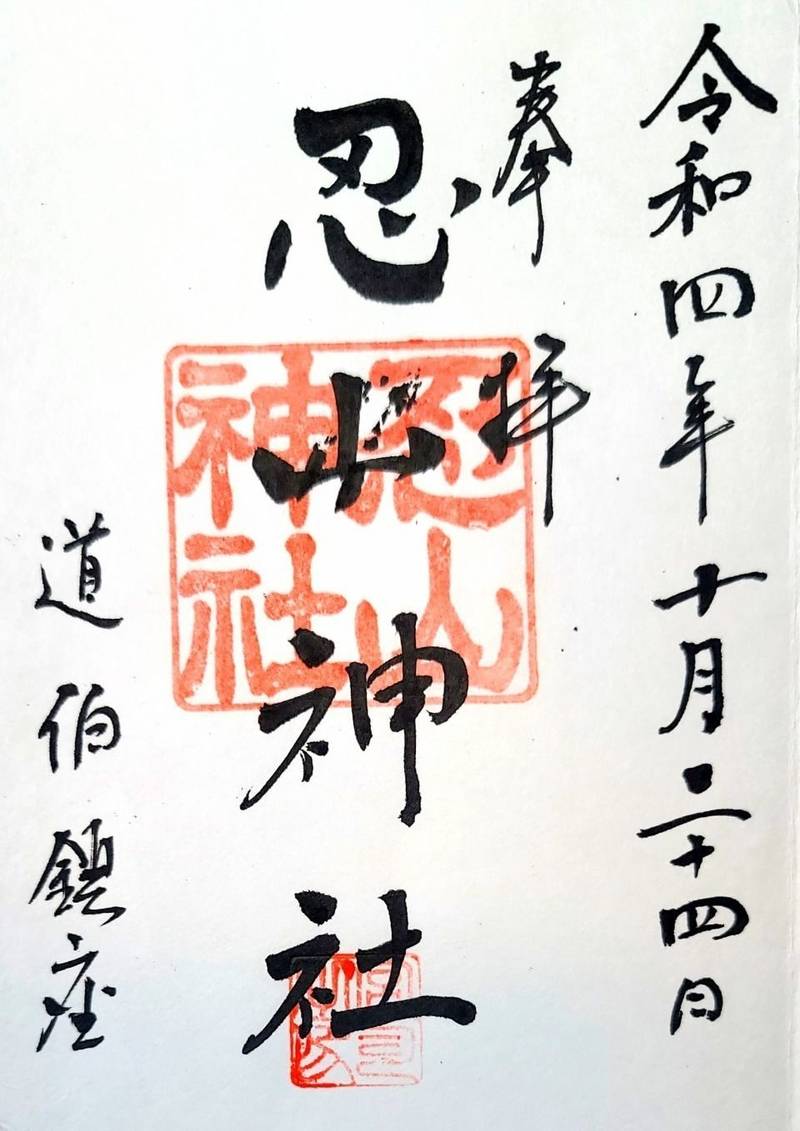 令和四年十月二十四日
奉拝
忍山神社
忍山神社
道伯鎮座